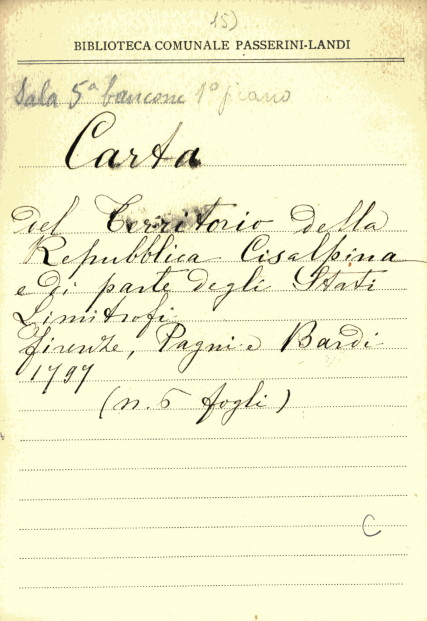 15)
BIBLIOTECA COMUNALE PASSERINI-LANDI
Sala 5ª bancone 1º piano
Carta
del Territorio della
Repubblica Cisalpina
e di parte degli Stati
Limitrofi
Firenze, Pagni e Bardi
1797
(n. 5 fogli)
C